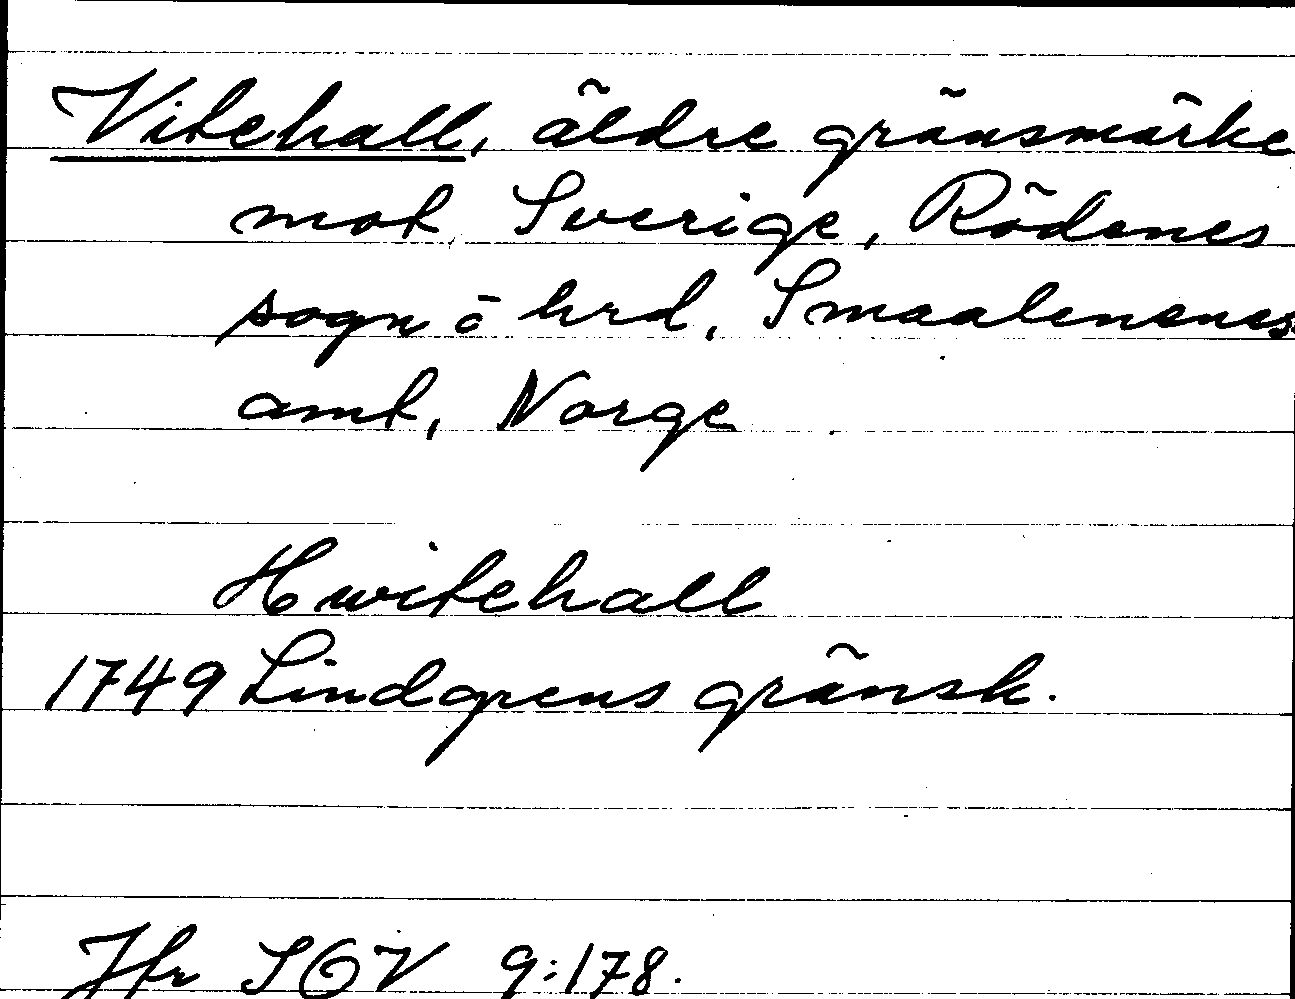 Vitehall, äldre gränsmärke
mot Sverige, Rödenes
sogn o hrd, Smaalenenes
amt, Norge
Hwitehall
1749 Lindgrens gränsk.
Jfr SOV 9:178.